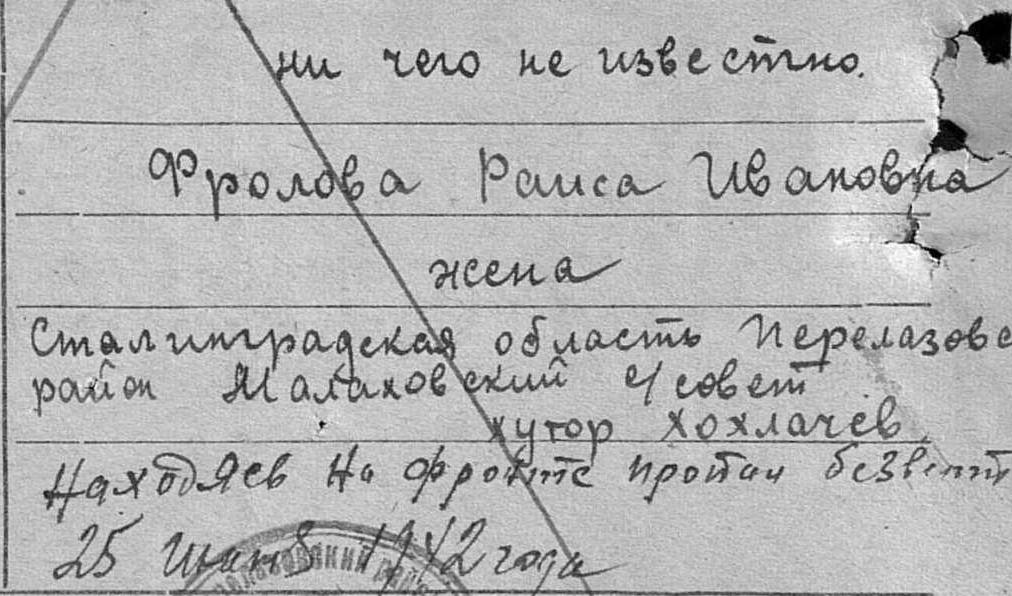 ни чего не известно.
Фролова Раиса Ивановна
жена
Сталинградская область Перелазовс
район Малаховский с/совет
хутор Хохлачев
Находяев на фронте пропал безвест
25 1942 года